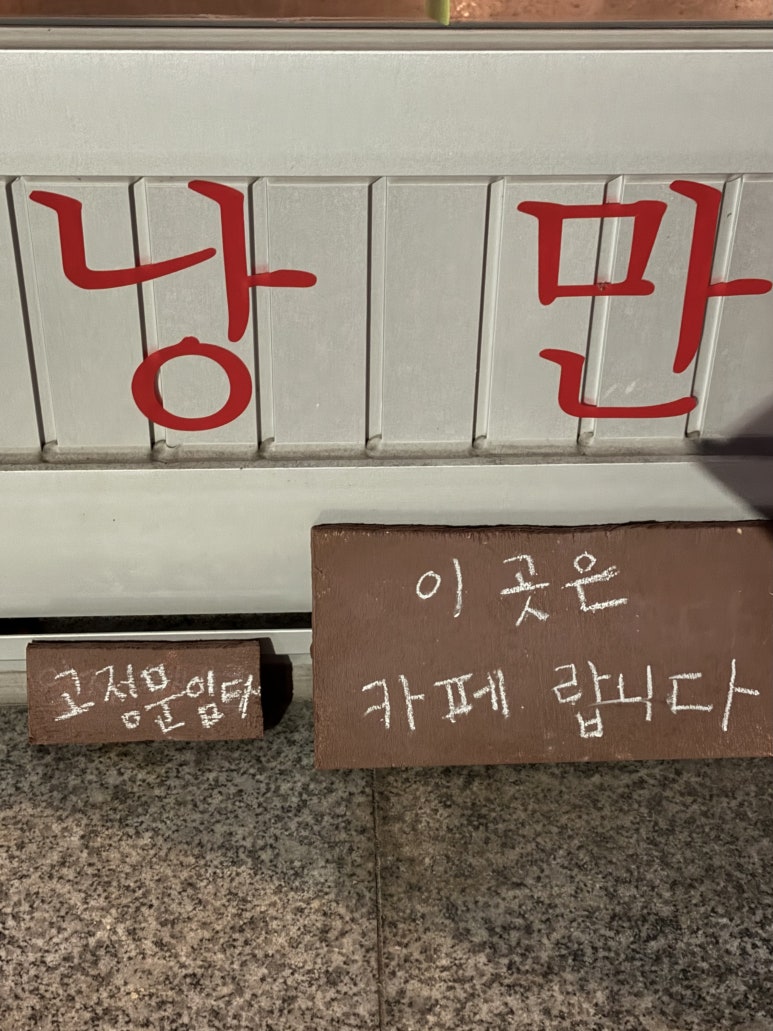 낭 만
이 곳은
카페 랍니다
고정문임다